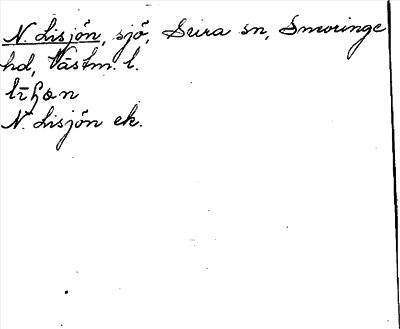 N. Lisjön, sjö, Sura sn, Snevringe
hd, Västm. l.
N. Lisjön ek.